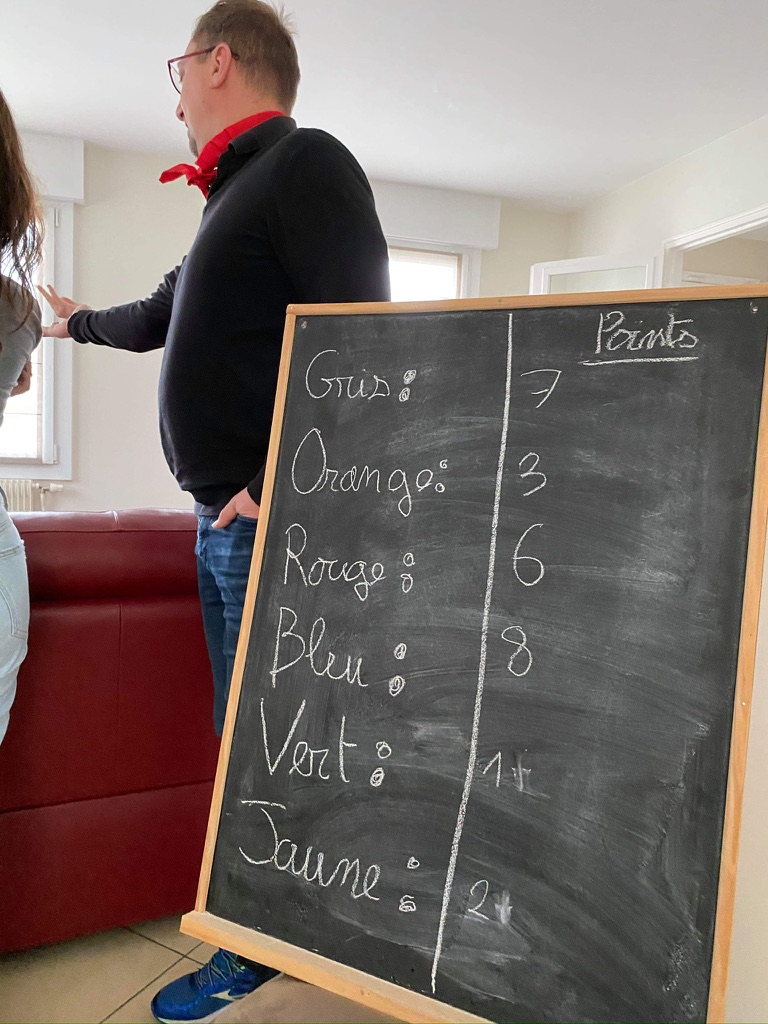 Points
Gris: 7
Orange: 3
Rouge: 6
Bleu: 8
Vert: 1
Jaune: 2